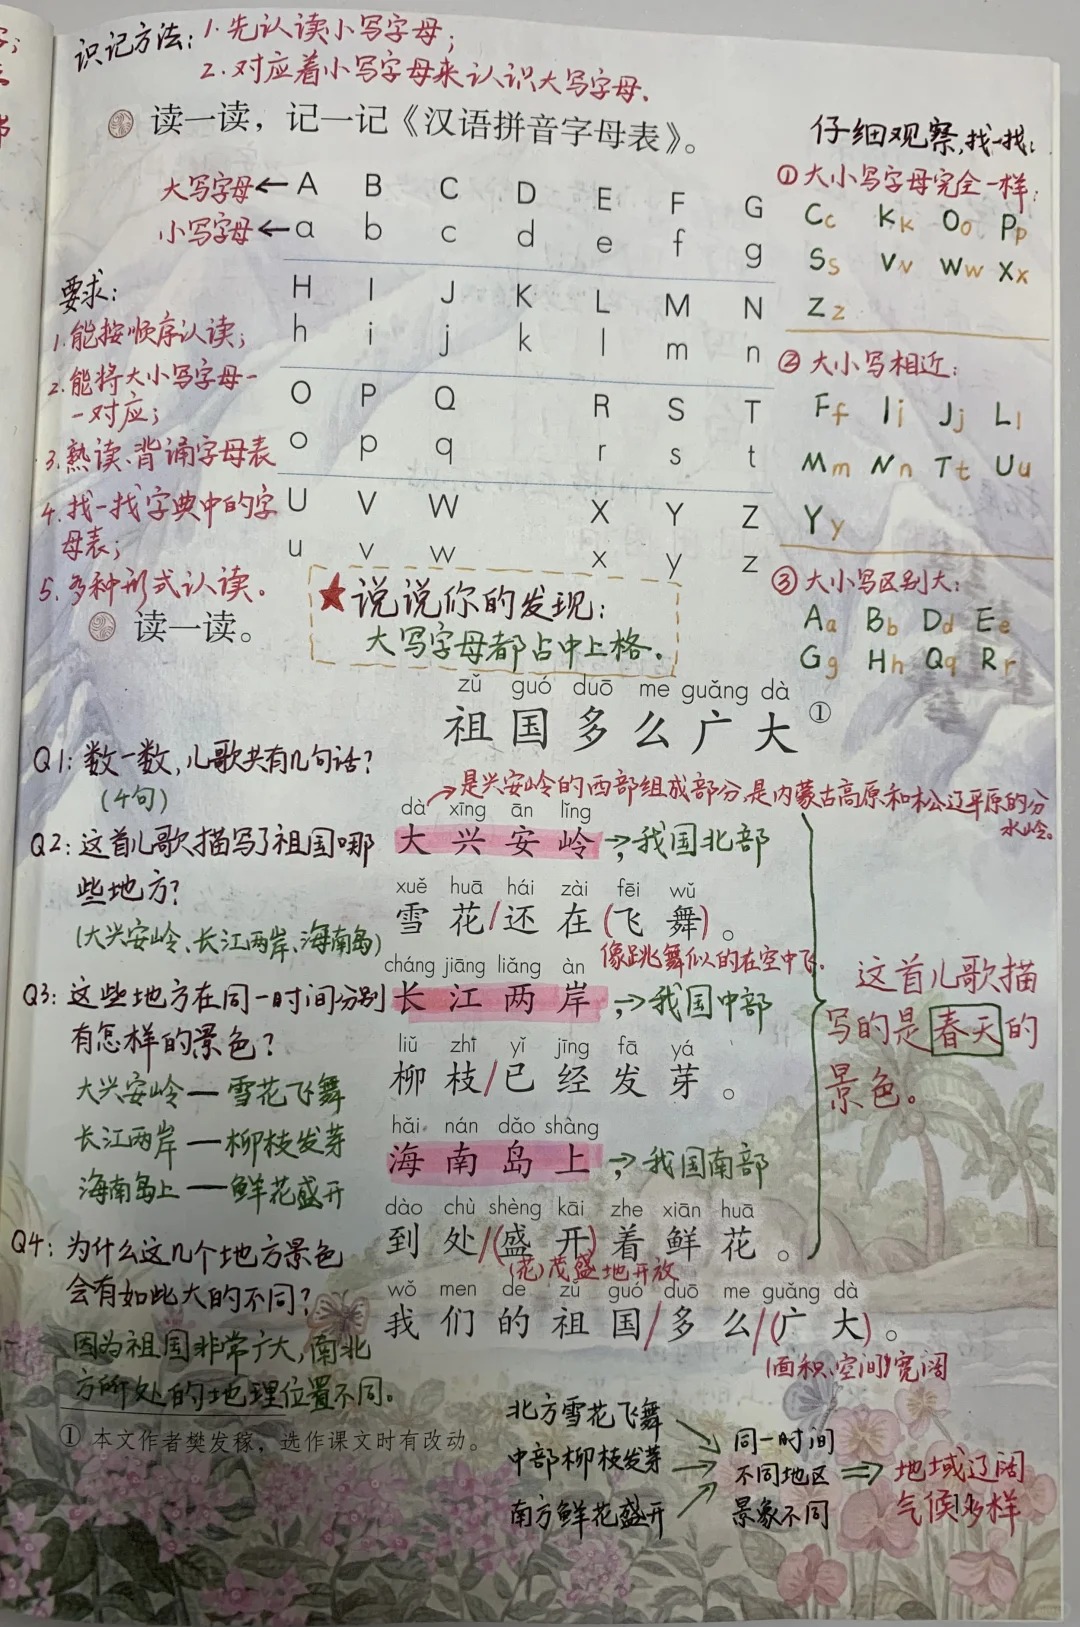 识记方法：1.先认读小写字母；
2.对应着小写字母来认识大写字母.
读一读，记一记《汉语拼音字母表》。
大写字母←A B C D E F G
小写字母←a b c d e f g
H I J K L M N
h i j k l m n
O P Q R S T
o p q r s t
U V W X Y Z
u v w x y z
要求：
1.能按顺序认读；
2.能将大小写字母一
一对应；
3.熟读、背诵字母表
4.找一找字典中的字
母表；
5.多种形式认读。
仔细观察,找一找：
①大小写字母完全一样：
Cc Kk Oo Pp
Ss Vv Ww Xx
Zz
②大小写相近：
Ff Ii Jj Ll
Mm Nn Tt Uu
Yy
③大小写区别大：
Aa Bb Dd Ee
Gg Hh Qq Rr
★说说你的发现：
大写字母都占中上格.
读一读。
zǔ guó duō me guǎng dà
祖国多么广大①
是兴安岭的西部组成部分,是内蒙古高原和松辽平原的分
水岭。
dà xīng ān lǐng
大兴安岭，→我国北部
xuě huā hái zài fēi wǔ
雪花/还在(飞舞)。
像跳舞似的在空中飞.
cháng jiāng liǎng àn
长江两岸，→我国中部
liǔ zhī yǐ jīng fā yá
柳枝/已经发芽。
hǎi nán dǎo shàng
海南岛上，→我国南部
dào chù shèng kāi zhe xiān huā
到处/(盛开)着鲜花。
(花)茂盛地开放
wǒ men de zǔ guó duō me guǎng dà
我们的祖国/多么/(广大)。
(面积、空间)宽阔
Q1：数一数,儿歌共有几句话？
(4句)
Q2：这首儿歌描写了祖国哪
些地方？
(大兴安岭、长江两岸、海南岛)
Q3：这些地方在同一时间分别
有怎样的景色？
大兴安岭—雪花飞舞
长江两岸—柳枝发芽
海南岛上—鲜花盛开
Q4：为什么这几个地方景色
会有如此大的不同？
因为祖国非常广大,南北
方所处的地理位置不同。
这首儿歌描
写的是春天的
景色。
①本文作者樊发稼，选作课文时有改动。
北方雪花飞舞
中部柳枝发芽
南方鲜花盛开
同一时间
不同地区
景象不同
⇒地域辽阔
气候多样